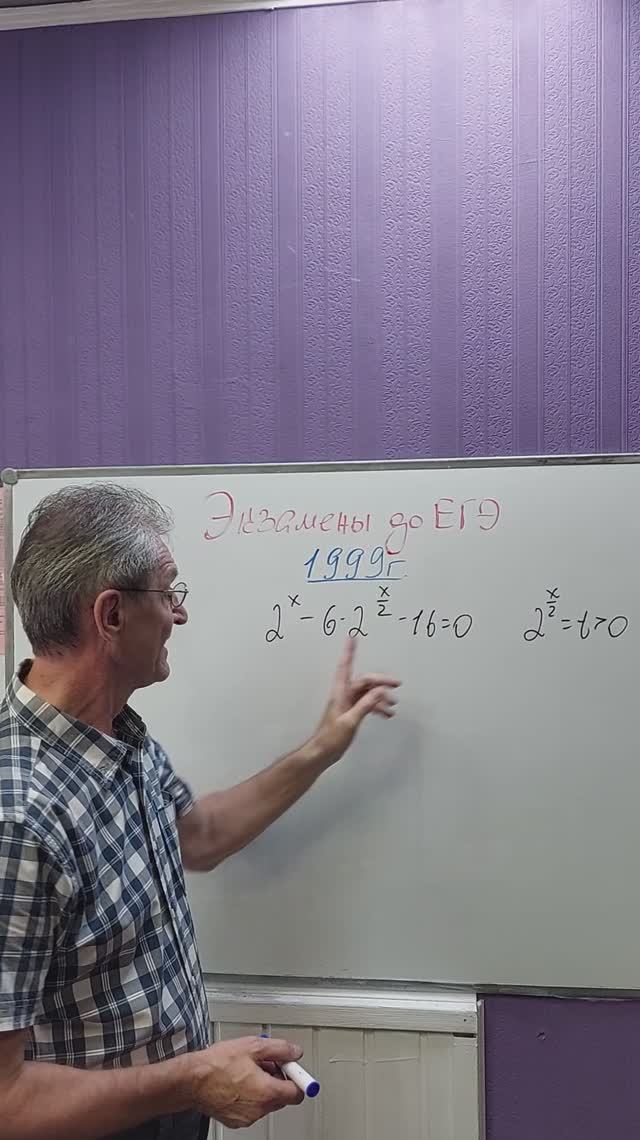 Экзамены до ЕГЭ
1999г.
2^x - 6·2^(x/2) - 16 = 0    2^(x/2) = t > 0